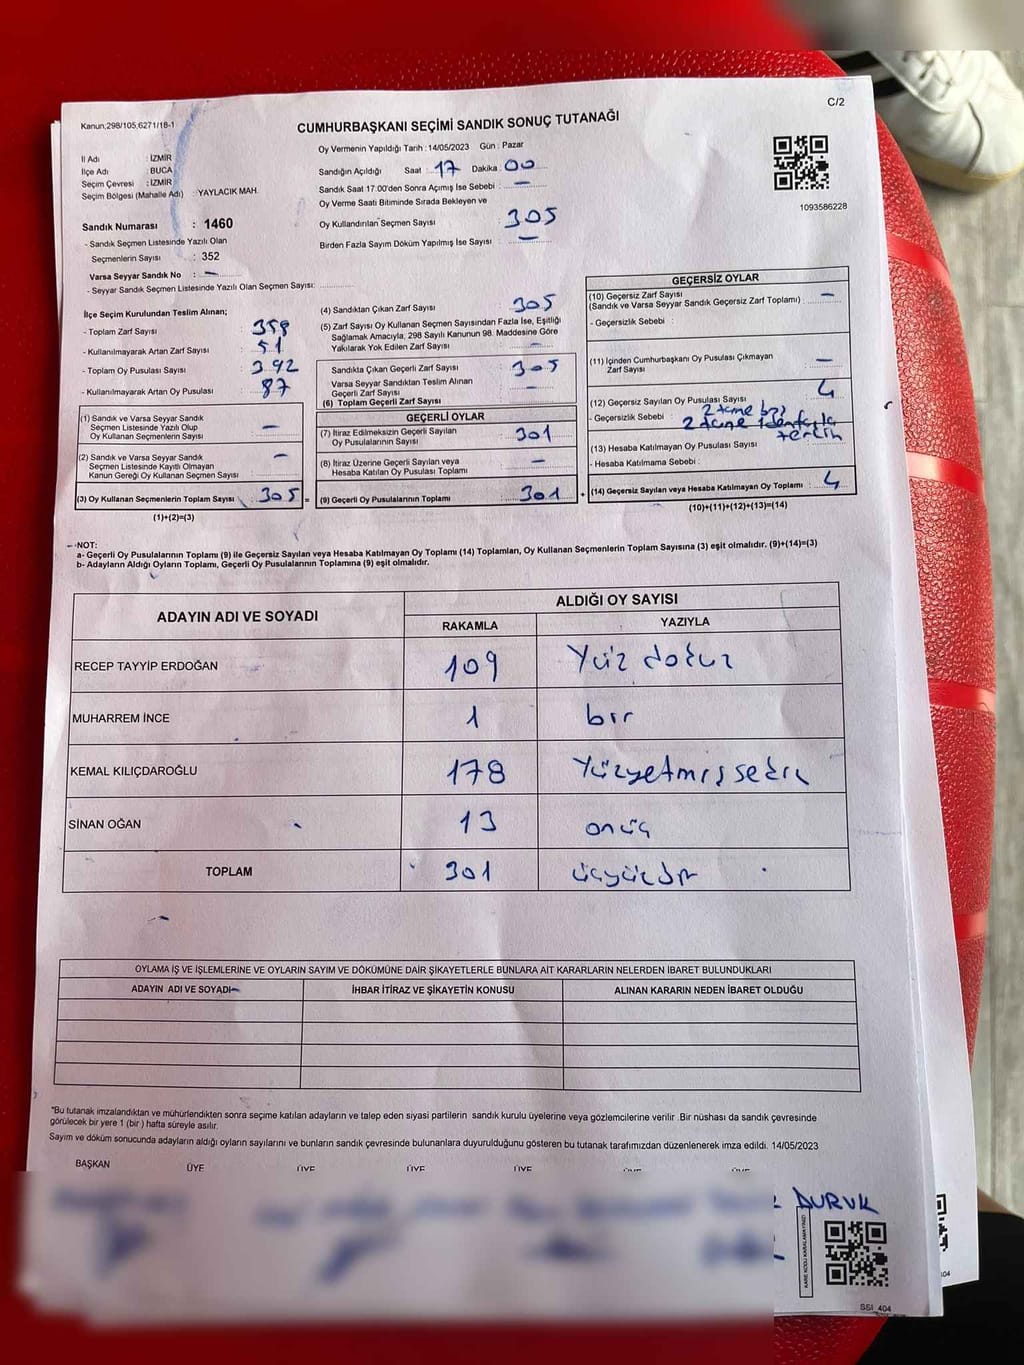 C/2
Kanun,298/105,6271/18-1
CUMHURBAŞKANI SEÇİMİ SANDIK SONUÇ TUTANAĞI
İl Adı : İZMİR
İlçe Adı : BUCA
Seçim Çevresi : İZMİR
Seçim Bölgesi (Mahalle Adı) : YAYLACIK MAH.
Sandık Numarası : 1460
- Sandık Seçmen Listesinde Yazılı Olan
Seçmenlerin Sayısı : 352
Varsa Seyyar Sandık No : —
- Seyyar Sandık Seçmen Listesinde Yazılı Olan Seçmen Sayısı:
Oy Vermenin Yapıldığı Tarih : 14/05/2023 Gün : Pazar
Sandığın Açıldığı Saat : 17 Dakika : 00
Sandık Saat 17.00'den Sonra Açımış İse Sebebi : —
Oy Verme Saati Bitiminde Sırada Bekleyen ve
Oy Kullandırılan Seçmen Sayısı : 305
Birden Fazla Sayım Döküm Yapılmış İse Sayısı : —
1093586228
İlçe Seçim Kurulundan Teslim Alınan;
- Toplam Zarf Sayısı : 358
- Kullanılmayarak Artan Zarf Sayısı : 51
- Toplam Oy Pusulası Sayısı : 392
- Kullanılmayarak Artan Oy Pusulası : 87
(1) Sandık ve Varsa Seyyar Sandık
Seçmen Listesinde Yazılı Olup
Oy Kullanan Seçmenlerin Sayısı : —
(2) Sandık ve Varsa Seyyar Sandık
Seçmen Listesinde Kayıtlı Olmayan
Kanun Gereği Oy Kullanan Seçmen Sayısı : —
(3) Oy Kullanan Seçmenlerin Toplam Sayısı : 305 =
(1)+(2)=(3)
(4) Sandıktan Çıkan Zarf Sayısı : 305
(5) Zarf Sayısı Oy Kullanan Seçmen Sayısından Fazla İse, Eşitliği
Sağlamak Amacıyla, 298 Sayılı Kanunun 98. Maddesine Göre
Yakılarak Yok Edilen Zarf Sayısı : —
Sandıkta Çıkan Geçerli Zarf Sayısı : 305
Varsa Seyyar Sandıktan Teslim Alınan
Geçerli Zarf Sayısı : —
(6) Toplam Geçerli Zarf Sayısı :
GEÇERLİ OYLAR
(7) İtiraz Edilmeksizin Geçerli Sayılan
Oy Pusulalarının Sayısı : 301
(8) İtiraz Üzerine Geçerli Sayılan veya
Hesaba Katılan Oy Pusulası Toplamı : —
(9) Geçerli Oy Pusulalarının Toplamı : 301 +
GEÇERSİZ OYLAR
(10) Geçersiz Zarf Sayısı
(Sandık ve Varsa Seyyar Sandık Geçersiz Zarf Toplamı) : —
- Geçersizlik Sebebi :
(11) İçinden Cumhurbaşkanı Oy Pusulası Çıkmayan
Zarf Sayısı : —
(12) Geçersiz Sayılan Oy Pusulası Sayısı : 4
- Geçersizlik Sebebi : 2 tane
2 tane tercih
(13) Hesaba Katılmayan Oy Pusulası Sayısı :
- Hesaba Katılmama Sebebi :
(14) Geçersiz Sayılan veya Hesaba Katılmayan Oy Toplamı : 4
(10)+(11)+(12)+(13)=(14)
-NOT:
a- Geçerli Oy Pusulalarının Toplamı (9) ile Geçersiz Sayılan veya Hesaba Katılmayan Oy Toplamı (14) Toplamları, Oy Kullanan Seçmenlerin Toplam Sayısına (3) eşit olmalıdır. (9)+(14)=(3)
b- Adayların Aldığı Oyların Toplamı, Geçerli Oy Pusulalarının Toplamına (9) eşit olmalıdır.
ADAYIN ADI VE SOYADI ALDIĞI OY SAYISI
RAKAMLA YAZIYLA
RECEP TAYYİP ERDOĞAN 109 Yüz dokuz
MUHARREM İNCE 1 bir
KEMAL KILIÇDAROĞLU 178 Yüzyetmişsekiz
SİNAN OĞAN 13 onüç
TOPLAM 301 üçyüzbir
OYLAMA İŞ VE İŞLEMLERİNE VE OYLARIN SAYIM VE DÖKÜMÜNE DAİR ŞİKAYETLERLE BUNLARA AİT KARARLARIN NELERDEN İBARET BULUNDUKLARI
ADAYIN ADI VE SOYADI İHBAR İTİRAZ VE ŞİKAYETİN KONUSU ALINAN KARARIN NEDEN İBARET OLDUĞU
"Bu tutanak imzalandıktan ve mühürlendikten sonra seçime katılan adayların ve talep eden siyasi partilerin sandık kurulu üyelerine veya gözlemcilerine verilir .Bir nüshası da sandık çevresinde
görülecek bir yere 1 (bir ) hafta süreyle asılır.
Sayım ve döküm sonucunda adayların aldığı oyların sayılarını ve bunların sandık çevresinde bulunanlara duyurulduğunu gösteren bu tutanak tarafımızdan düzenlenerek imza edildi. 14/05/2023
BAŞKAN ÜYE ÜYE ÜYE ÜYE
DURUK
KARE KODU KARALAMAYINIZ!
SSI_404